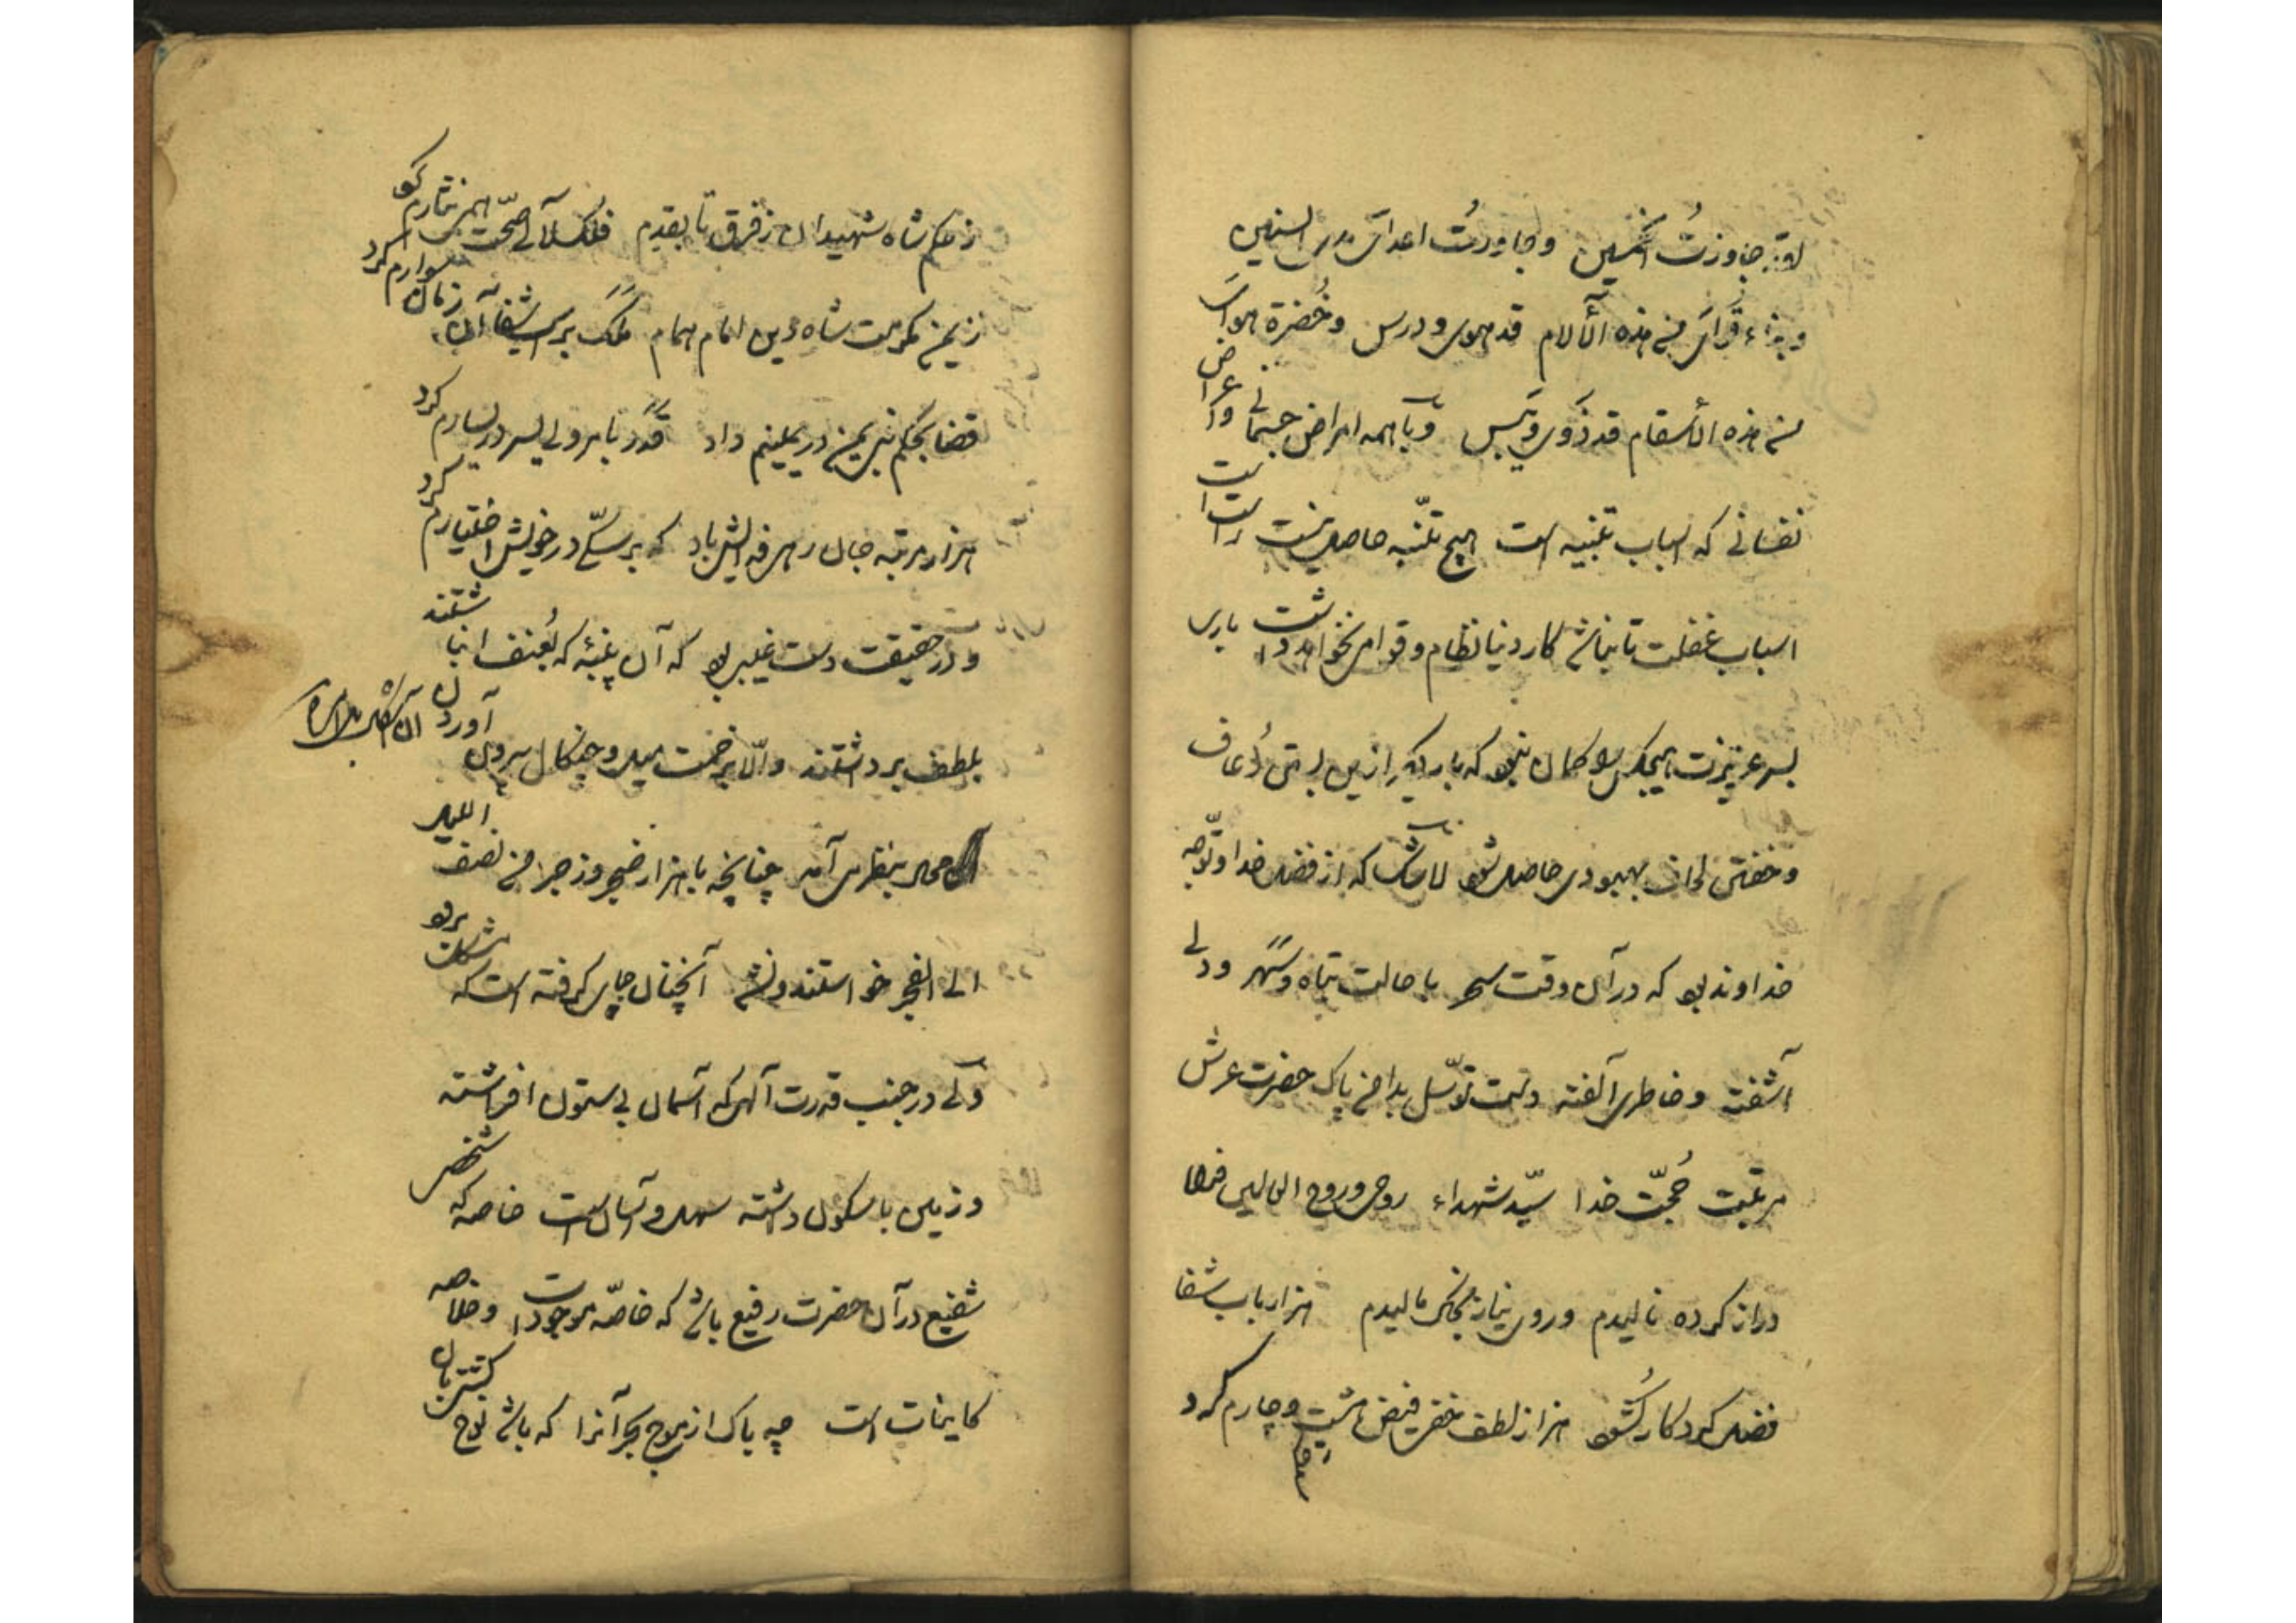 لقد جاوزتُ الخمسین وجاورتُ اعدای مدی السنین
وبناء قوای من هذه الآلام قد هوی و درس وخُضرة هوای
من هذه الأسقام قد ذَوی ویَبِس وبا همه امراض جسمانی واعراض
نفسانی که اسباب تنبیه است هیچ تنبّه حاصل نیست راست است
اسباب غفلت تا نباشد کار دنیا نظام وقوامی نخواهد داشت باری
بسر عزیزت هیچکس را کمان نبود که بار دیگر ازین بستر زعاف
وخفتن لحاف بهبودی حاصل شود لاشک که از فضل خدا وتوّجه
خداوند بود که در آن وقت سحر با حالت تباه وسَهَر ودلی
آشفته وخاطری آلفته دست توسّل بدامن پاک حضرت عرش
مرتبت حُجّت خدا سیّد شهداء روحی وروح العالمین فداه
دراز کرده نالیدم وروی نیاز بخاک مالیدم هزار باب شفا
فضل کردکار کشود هزار لطف خفی فیض هشت وچارم کرد
زحکم شاه شهیدان زفرق تا بقدم فلک لآلی صحّت همی نثارم کرد
زیمن مکرمت شاه دین امام همام ملک برسب شفا آن زمان سوارم کرد
قضا بحکم وی یمن در یمینم داد قدر بامر ولی یسر در یسارم کرد
هزار مرتبه جان رهی فدایش باد که بر سکی در خویش اختیارم کرد
ودر حقیقت دست غیبی بود که آن پنبه که بُعنف انباشتند
بلطف برداشتند والّا بزحمت میل وچنکال بیرون آوردن آن
محال بنظر می آمد چنانچه با هزار ضجر وزجر من نصف اللیل
الی الفجر خواستند ونشد آنچنان جای کرفته است که
ولی در جنب قدرت آلهی که آسمان بی ستون افراشته
وزمین با سکون داشته سهل وآسان است خاصه که شخص
شفیع در آن حضرت رفیع باشد که خاصّه موجودات وخلاصه
کاینات است چه باک از موج بحر آنرا که باشد نوح کشتیبان